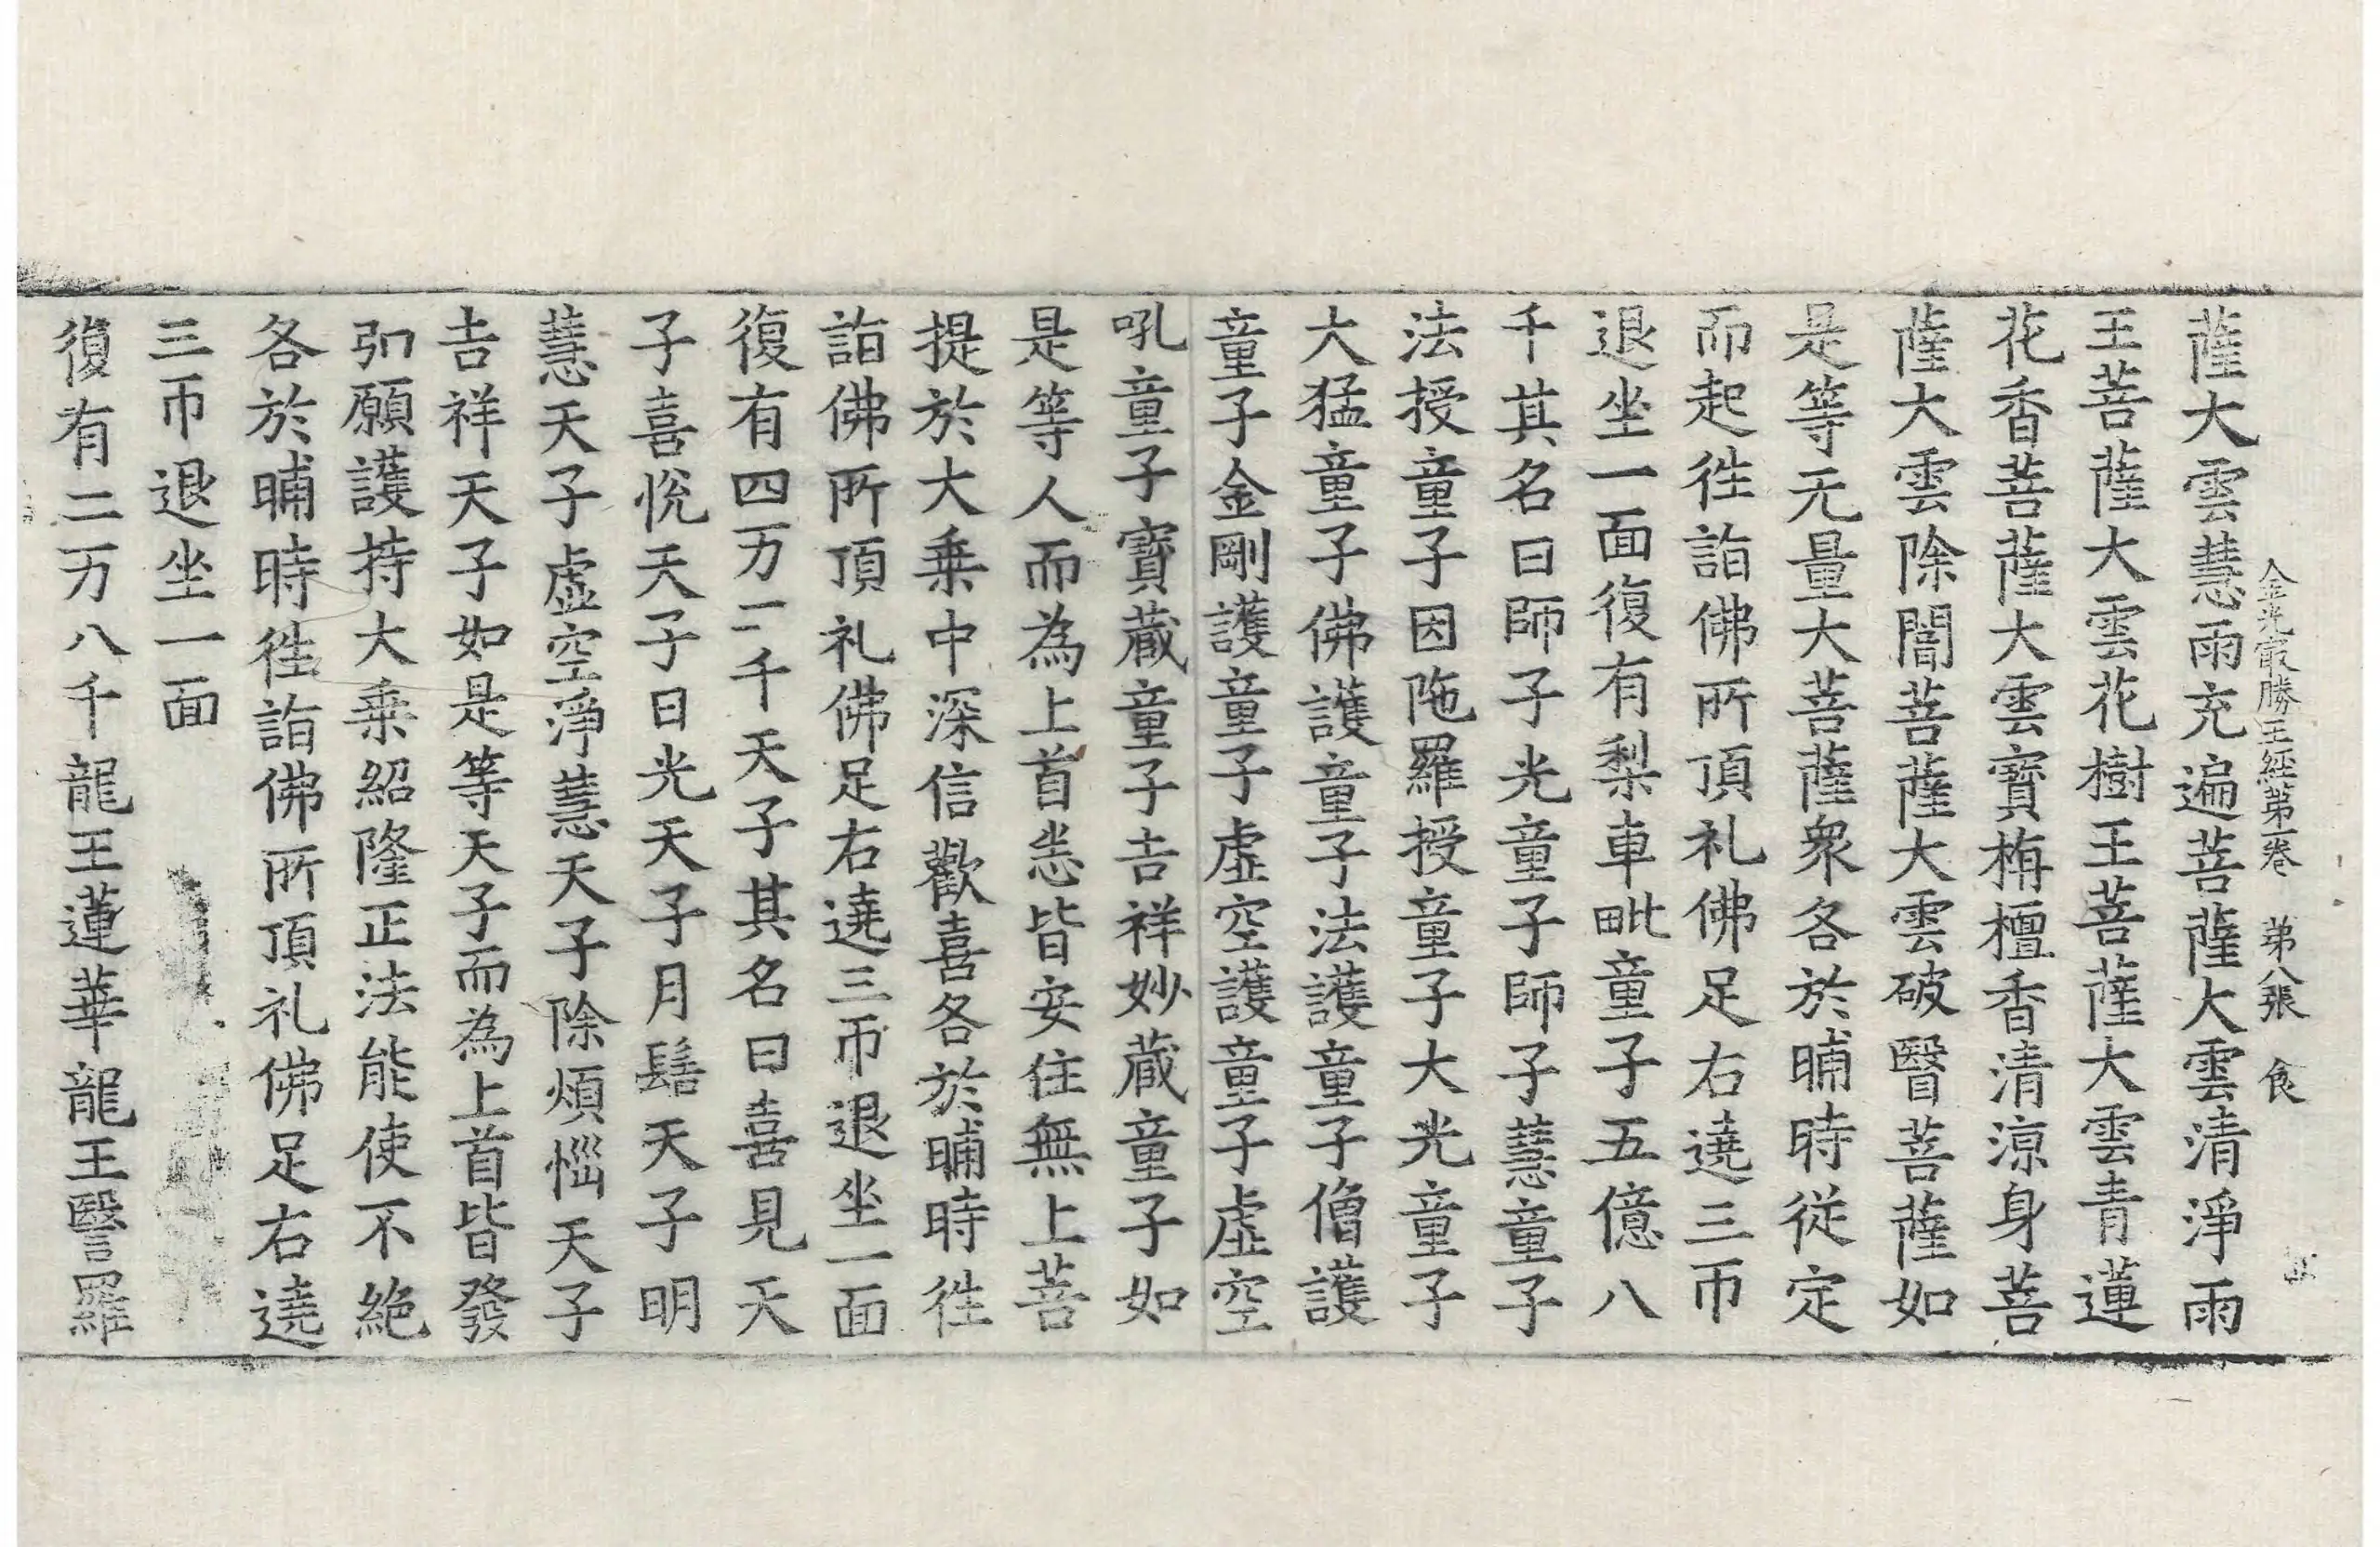 金光㝡勝王經第一卷　苐八張　食
薩大雲慧雨充遍菩薩大雲清淨雨
王菩薩大雲花樹王菩薩大雲青蓮
花香菩薩大雲寶栴檀香清涼身菩
薩大雲除闇菩薩大雲破瞖菩薩如
是等无量大菩薩衆各於晡時從定
而起徃詣佛所頂礼佛足右遶三帀
退坐一面復有梨車毗童子五億八
千其名曰師子光童子師子慧童子
法授童子因陁羅授童子大光童子
大猛童子佛護童子法護童子僧護
童子金剛護童子虛空護童子虛空
吼童子寶藏童子吉祥妙藏童子如
是等人而為上首悉皆安住無上菩
提於大乗中深信歡喜各於晡時徃
詣佛所頂礼佛足右遶三帀退坐一面
復有四万二千天子其名曰喜見天
子喜恱天子日光天子月髻天子明
慧天子虛空淨慧天子除煩惱天子
吉祥天子如是等天子而為上首皆發
弘願護持大乗紹隆正法能使不絶
各於晡時徃詣佛所頂礼佛足右遶
三帀退坐一面
復有二万八千龍王蓮華龍王瞖羅